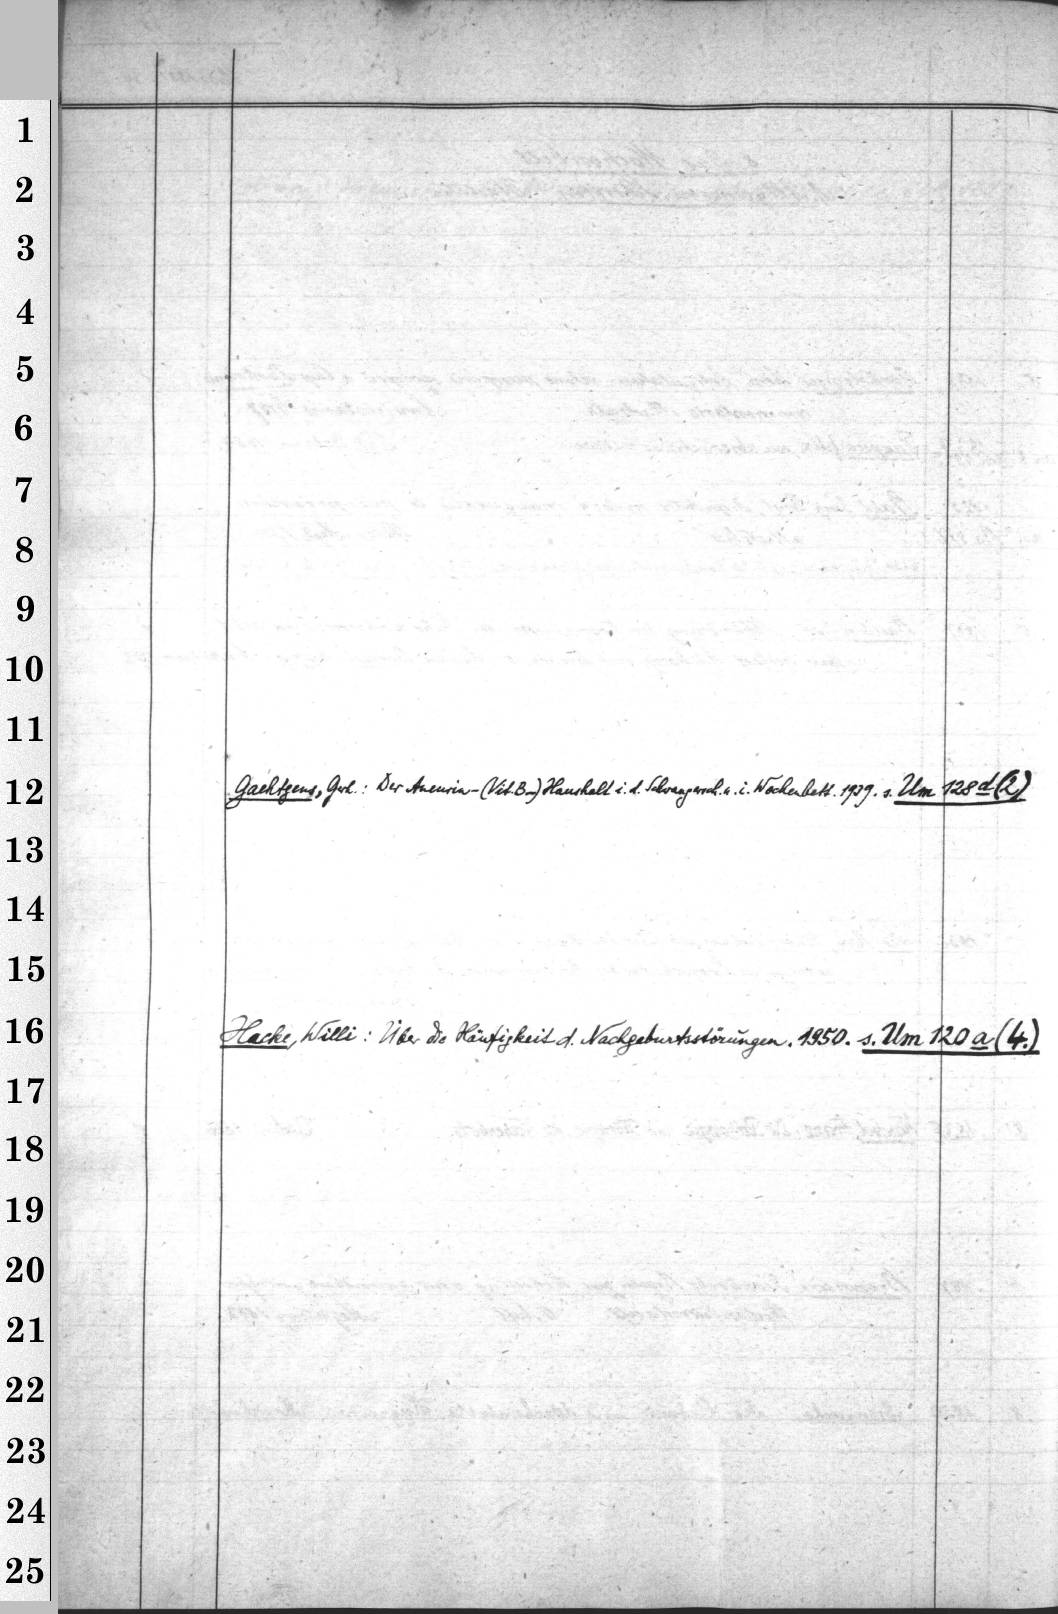 1
2
3
4
5
6
7
8
9
10
11
12
Gaehtgens, Gerh.: Der Aneurin-(Vit. B₁-) Haushalt i. d. Schwangersch. u. i. Wochenbett. 1939. s. Um 128 d (2)
13
14
15
16
Hacke, Willi: Über die Häufigkeit d. Nachgeburtsstörungen. 1950. s. Um 120 a (4.)
17
18
19
20
21
22
23
24
25